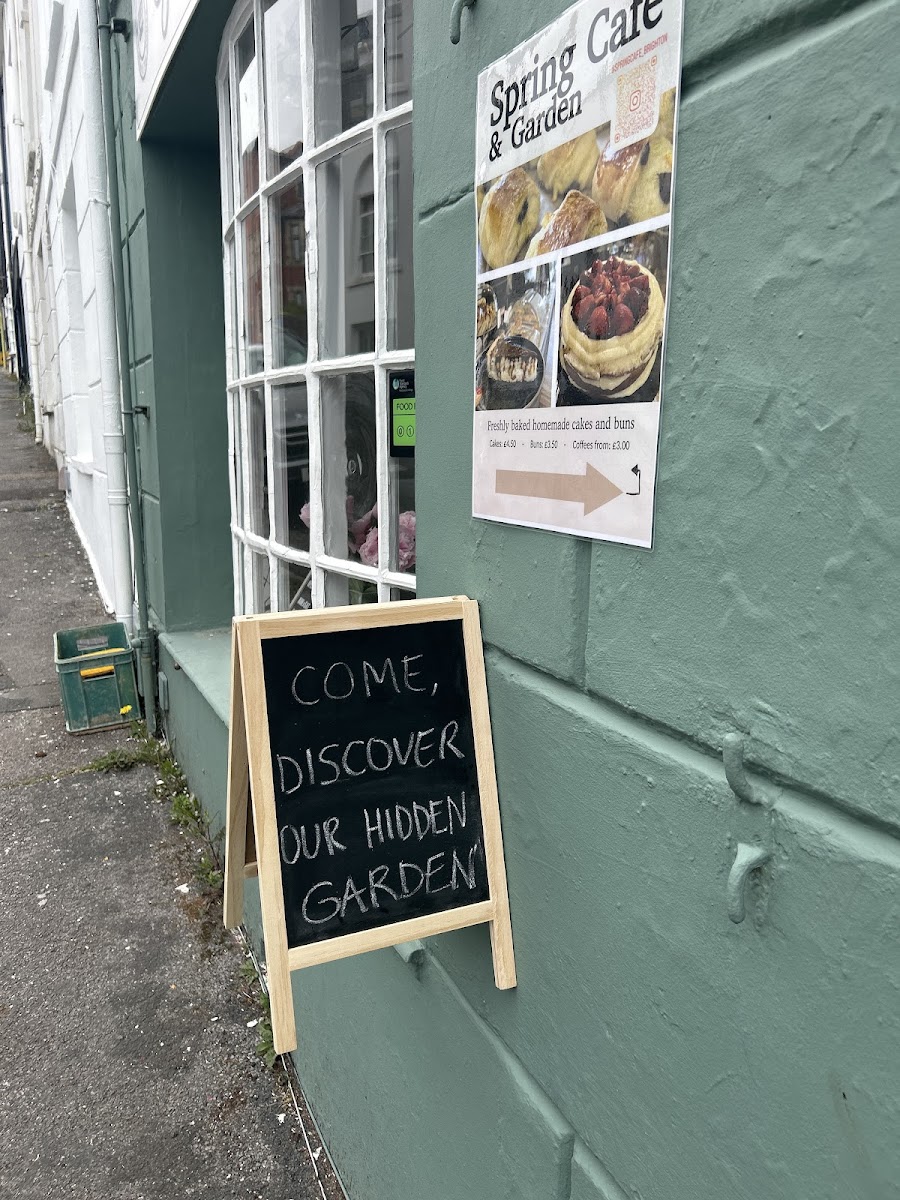 Spring Cafe
& Garden
@SPRINGCAFE_BRIGHTON
Freshly baked homemade cakes and buns
Cakes: £4.50 - Buns: £3.50 - Coffees from: £3.00
FOOD
0 1
COME,
DISCOVER
OUR HIDDEN
GARDEN